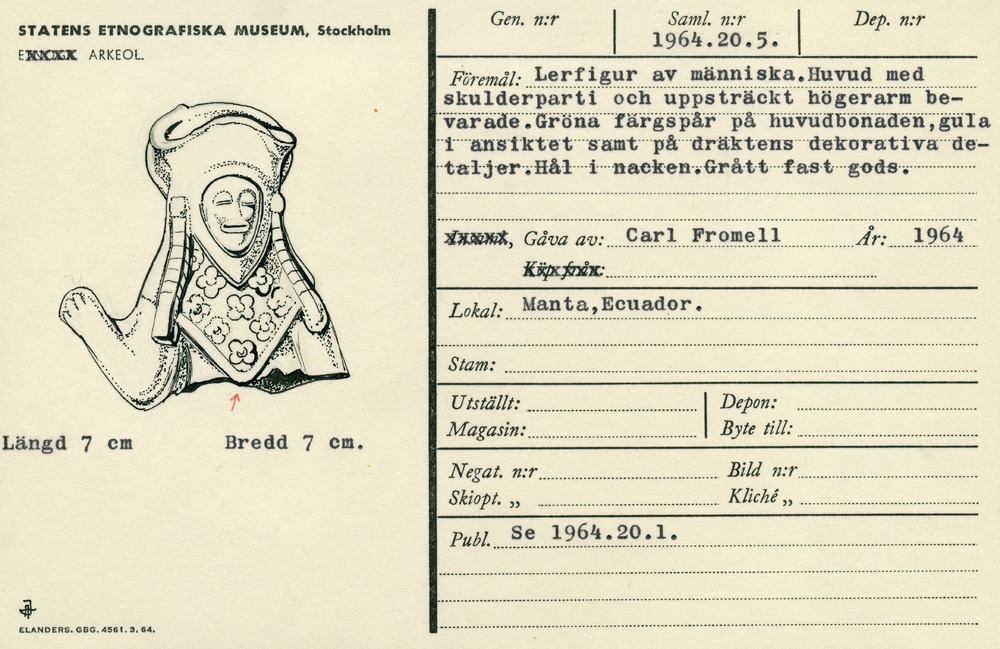 STATENS ETNOGRAFISKA MUSEUM, Stockholm
ARKEOL.
Längd 7 cm Bredd 7 cm.
ELANDERS. GBG. 4561. 3. 64.
Gen. n:r Saml. n:r Dep. n:r
1964.20.5.
Föremål: Lerfigur av människa.Huvud med
skulderparti och uppsträckt högerarm be-
varade.Gröna färgspår på huvudbonaden,gula
i ansiktet samt på dräktens dekorativa de-
taljer.Hål i nacken.Grått fast gods.
Gåva av: Carl Fromell År: 1964
Köp från:
Lokal: Manta,Ecuador.
Stam:
Utställt: Depon:
Magasin: Byte till:
Negat. n:r Bild n:r
Skiopt. „ Kliché „
Publ. Se 1964.20.1.